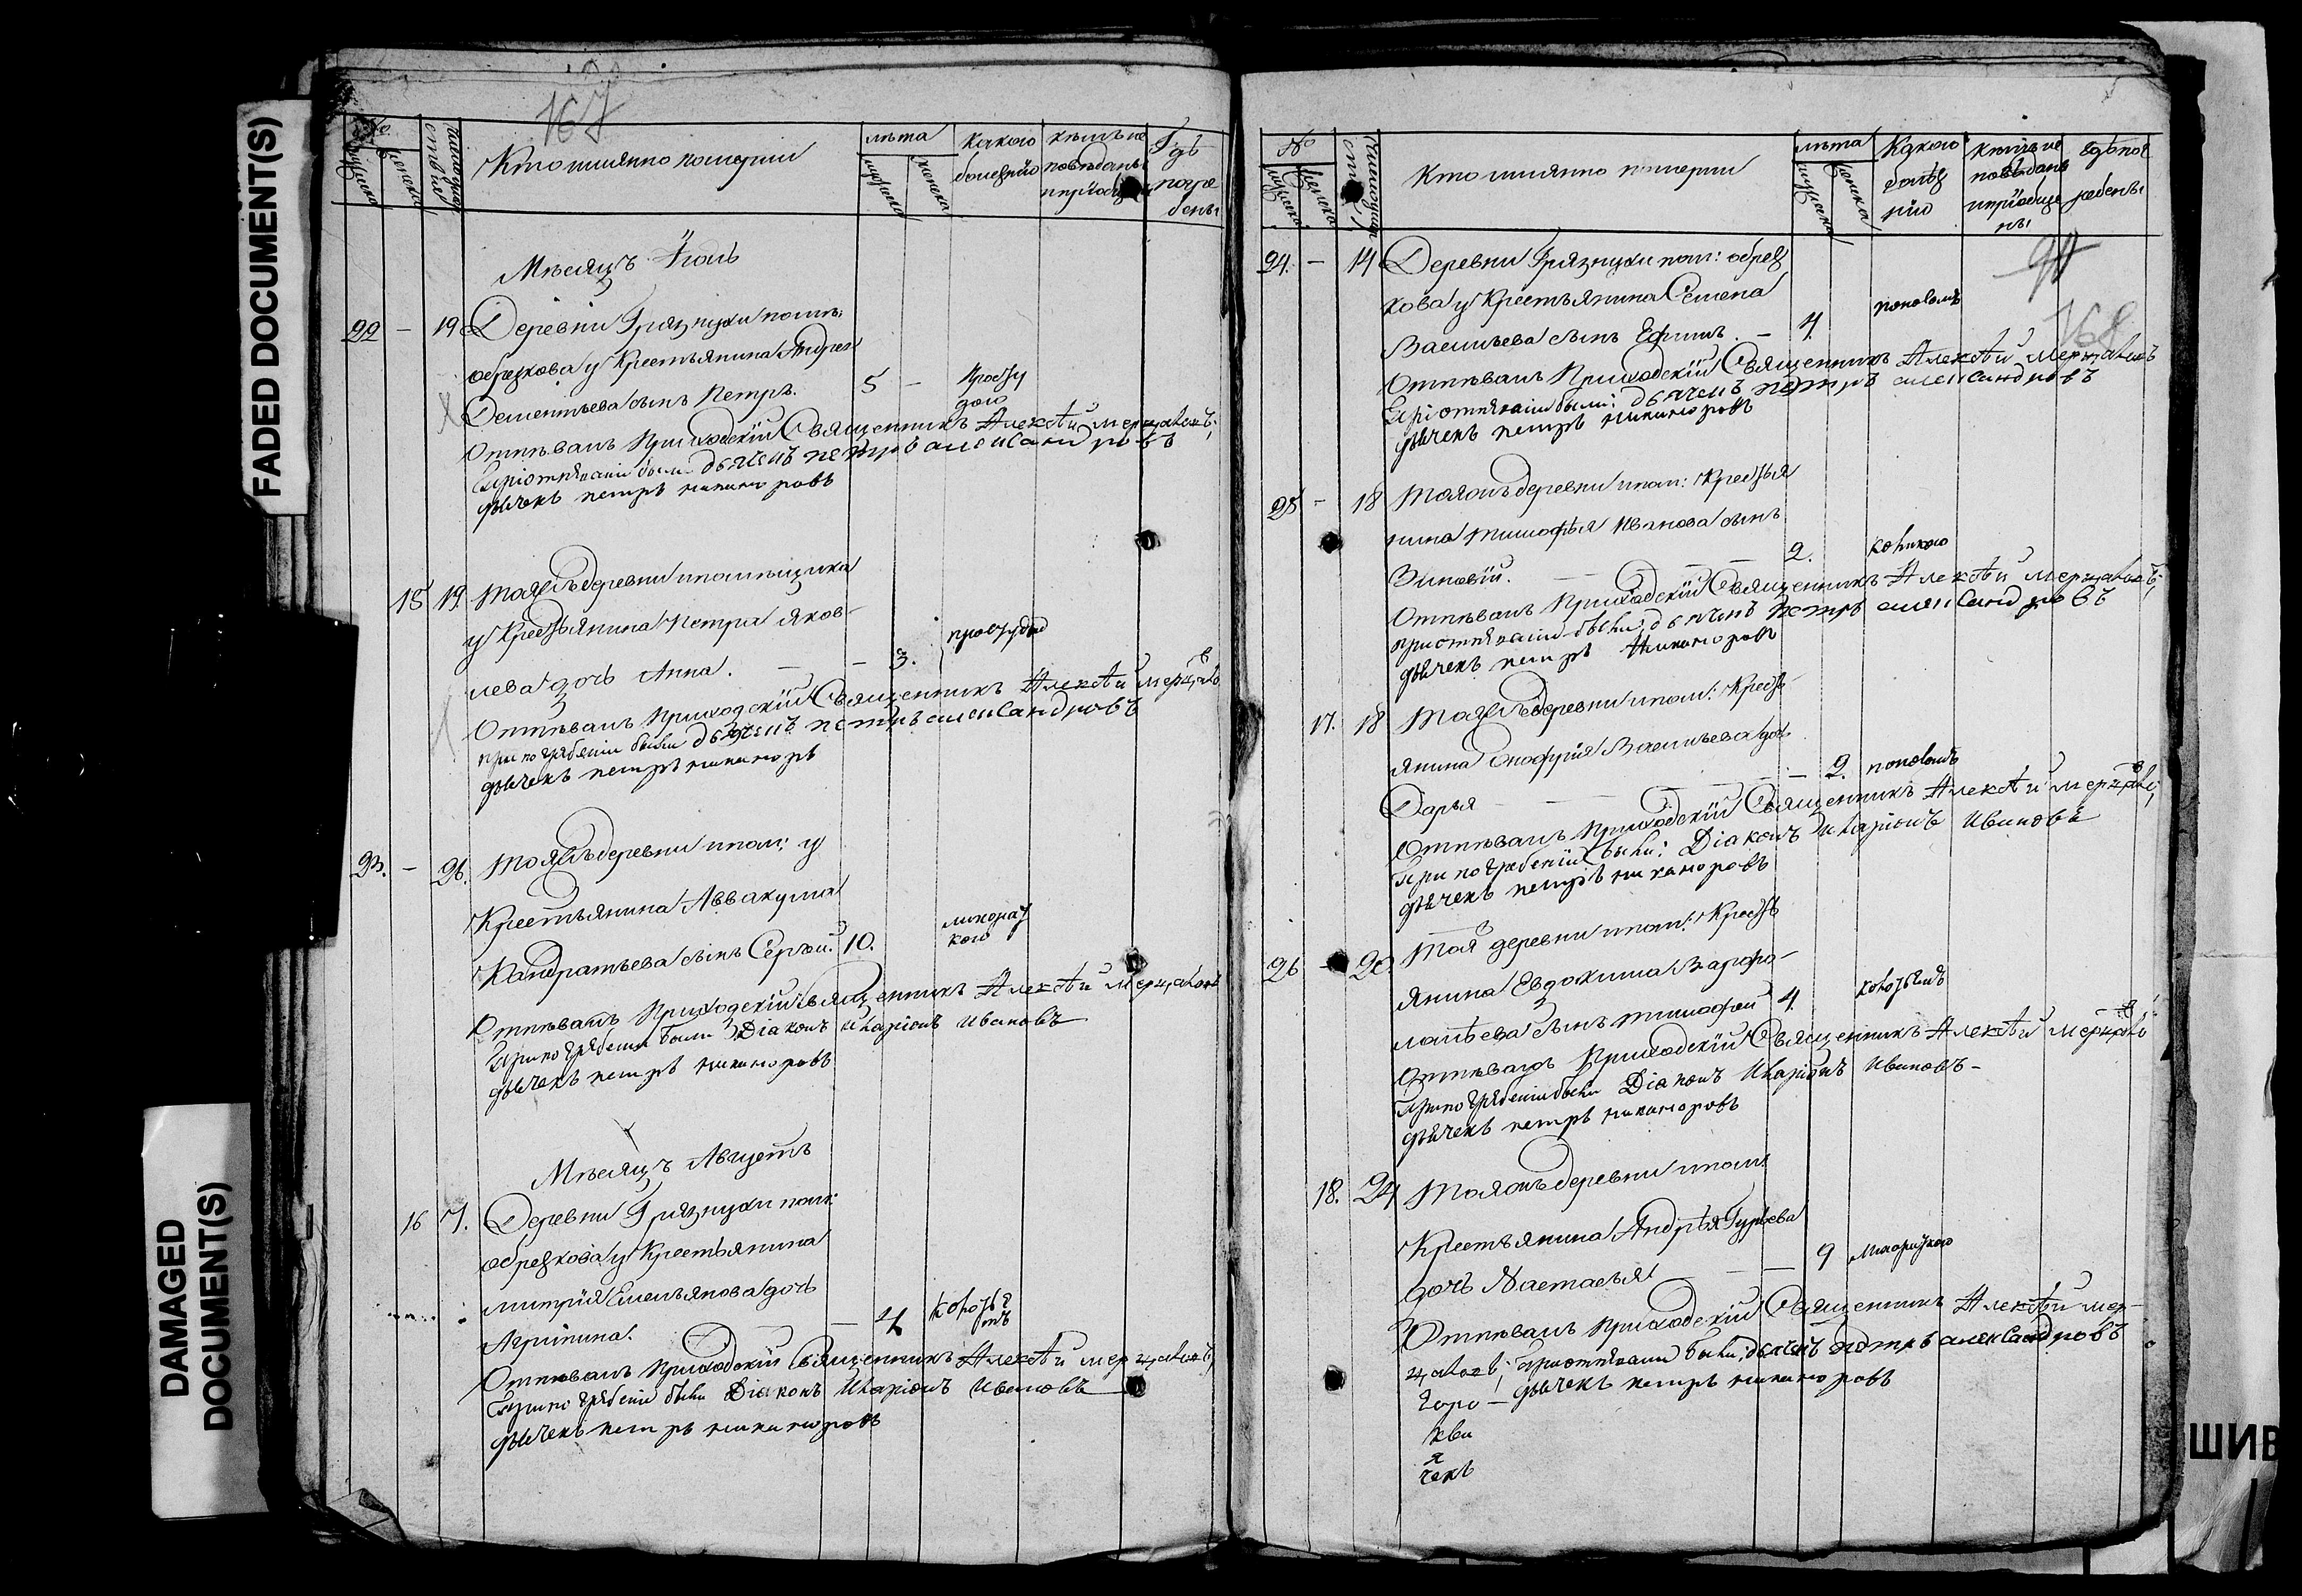 FADED DOCUMENT(S)
DAMAGED
DOCUMENT(S)
167
№ число
мужеска женска
Кто имянно померли
лѣта
мужеска женска
какою болезнію
кѣмъ исповѣданы и пріобщены
Гдѣ погребены
Мѣсяцъ Іюль
22 – 19 Деревни Грязнухи помѣ:
обрезкова у Крестьянина Андрея
Дементьева сынъ Петръ. 5 – простудою
Отпѣвалъ Приходскій Священникъ Алексѣй мерцаловъ;
При отпѣваніи были дьячекъ петръ александровъ
дьячекъ петръ никаноровъ
15 19. тояжъ деревни и помѣщика
у Крестьянина Петра яков-
лева дочь Анна. – – 3. простудой
Отпѣвалъ Приходскій Священникъ Алексѣй мерцаловъ
при погребеніи были дьячекъ петръ александровъ
дьячекъ петръ никаноръ
23. – 26. тояжъ деревни и пом: у
Крестьянина Аввакума
Кандратьева сынъ Сергѣй. 10. лихорадкою
Отпѣвалъ Приходскій Священникъ Алексѣй мерцаловъ
При погребеніи были Діаконъ Иларіонъ Ивановъ
дьячекъ петръ никаноровъ
Мѣсяцъ Августъ
16 7. Деревни Грязнухи пом:
обрезкова у Крестьянина
митрія Емельянова дочь
Агрипина. – – 4
Отпѣвалъ Приходскій Священникъ Алексѣй мерцаловъ;
При погребеніи были Діаконъ Иларіонъ Ивановъ
дьячекъ петръ никаноровъ
№
мужеска женска
Кто имянно померли
лѣта
мужеска женска
Какою болѣзнію
кѣмъ исповѣданы и пріобщены
гдѣ погребены
168
24. – 14 Деревни Грязнухи пом: обрез
кова у Крестьянина Семена
Васильева сынъ Ефимъ. – 4. поносомъ
Отпѣвалъ Приходскій Священникъ Алексѣй мерцаловъ
При отпѣваніи были: дьячекъ петръ александровъ
дьячекъ петръ никаноровъ
25 – 18 тояжъ деревни и пом: Крестья
нина тимофѣя Иванова сынъ
Зиновій. – – – 2.
Отпѣвалъ Приходскій Священникъ Алексѣй мерцаловъ;
при отпѣваніи были: дьячекъ петръ александровъ
дьячекъ петръ никаноровъ
17. 18 тояжъ деревни и пом: Кресть-
янина Онофрія Васильева дочь
Дарья – – – 2. поносомъ
Отпѣвалъ Приходскій Священникъ Алексѣй мерцаловъ;
При погребеніи были: Діаконъ Иларіонъ Ивановъ
дьячекъ петръ никаноровъ
26 – 20 тояжъ деревни и пом: Кресть
янина Евдокима Варфо-
ломѣева сынъ тимофей 4.
Отпѣвалъ Приходскій Священникъ Алексѣй мерцаловъ
При погребеніи были Діаконъ Иларіонъ Ивановъ –
дьячекъ петръ никаноровъ
18. 24 тояжъ деревни и пом:
Крестьянина Андрѣя Гурьева
дочь Настасья – – 9 лихорадкою
Отпѣвалъ Приходскій Священникъ Алексѣй мер-
цаловъ; При отпѣваніи были; дьячекъ петръ александровъ
дьячекъ петръ никаноровъ
ШИВ